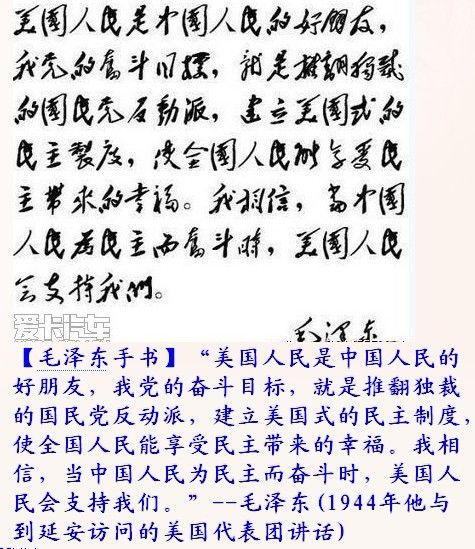 美國人民是中國人民的好朋友，
我党的奮斗目標，就是推翻獨裁
的國民党反動派，建立美國式的
民主製度，使全國人民能享受民
主帶來的幸福。我相信，當中國
人民為民主而奮斗時，美國人民
会支持我們。
爱卡汽车
毛澤东
【毛泽东手书】“美国人民是中国人民的
好朋友，我党的奋斗目标，就是推翻独裁
的国民党反动派，建立美国式的民主制度，
使全国人民能享受民主带来的幸福。我相
信，当中国人民为民主而奋斗时，美国人
民会支持我们。”--毛泽东(1944年他与
到延安访问的美国代表团讲话)